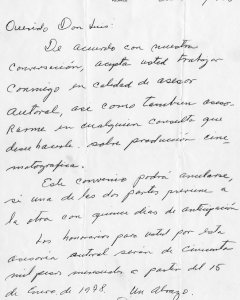 Querido Don Luis:
De acuerdo con nuestra
conversación, acepta usted trabajar
conmigo en calidad de asesor
autoral, asi como tambien aseso-
rarme en cualquier consulta que
desee hacerle sobre producción cine-
matografica.
Este convenio podrá anularse,
si una de las dos partes previene a
la otra con quince dias de anticipación
Los honorarios para usted por esta
asesoria autoral serán de cincuenta
mil pesos mensuales a partir del 15
de Enero de 1978. Un Abrazo.